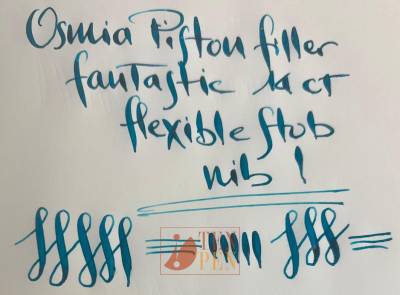 Osmia Piston filler
fantastic 14 ct
flexible stub
nib !
TEN
PEN